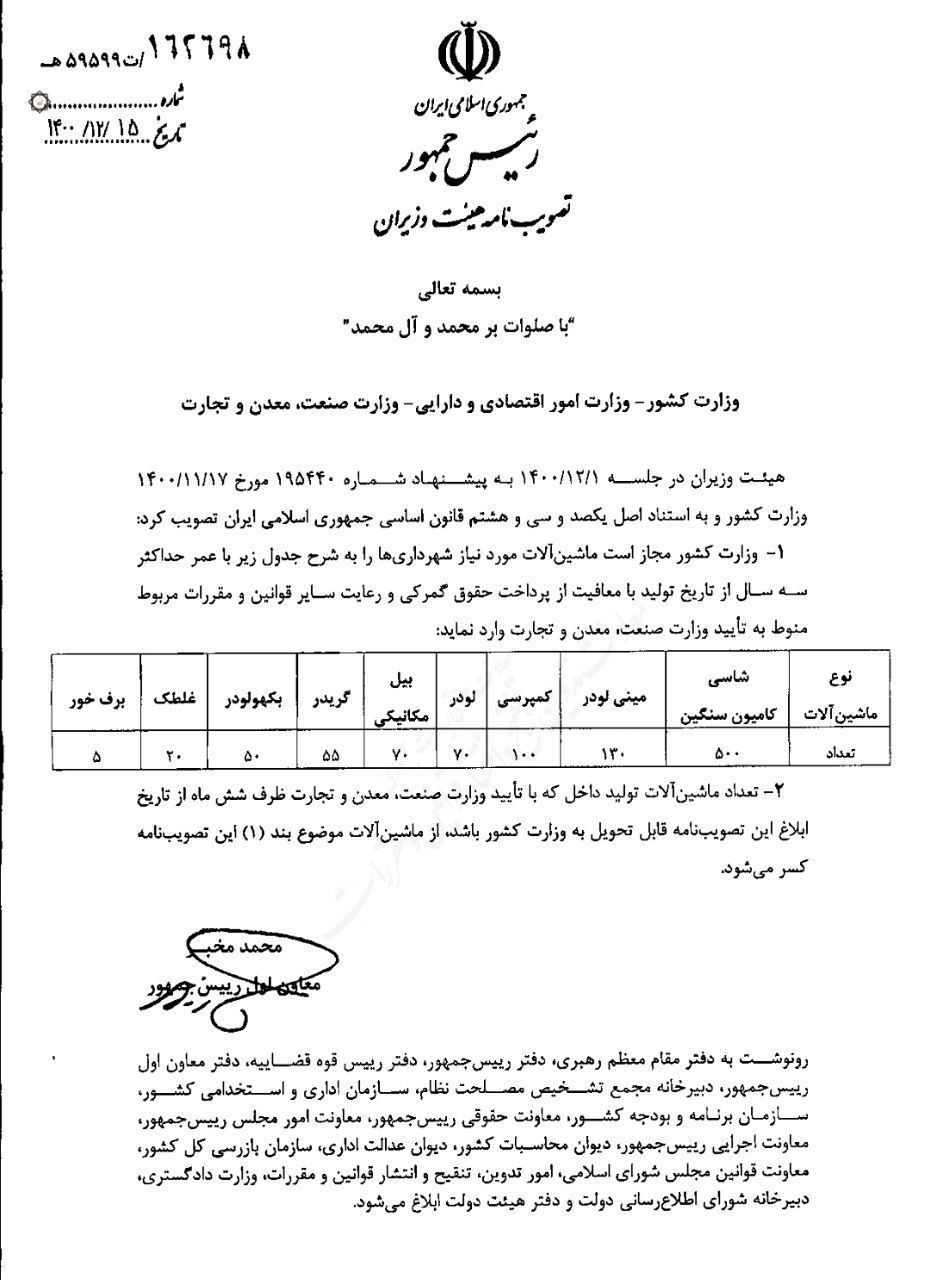 ۱۶۲۶۹۸/ت۵۹۵۹۹هـ
شماره
تاریخ ۱۴۰۰/۱۲/۱۵
جمهوری اسلامی ایران
رئیس جمهور
تصویب نامه هیئت وزیران
بسمه تعالی
"با صلوات بر محمد و آل محمد"
وزارت کشور – وزارت امور اقتصادی و دارایی – وزارت صنعت، معدن و تجارت
هیئت وزیران در جلسه ۱۴۰۰/۱۲/۱ به پیشنهاد شماره ۱۹۵۴۴۰ مورخ ۱۴۰۰/۱۱/۱۷
وزارت کشور و به استناد اصل یکصد و سی و هشتم قانون اساسی جمهوری اسلامی ایران تصویب کرد:
۱– وزارت کشور مجاز است ماشین‌آلات مورد نیاز شهرداری‌ها را به شرح جدول زیر با عمر حداکثر
سه سال از تاریخ تولید با معافیت از پرداخت حقوق گمرکی و رعایت سایر قوانین و مقررات مربوط
منوط به تأیید وزارت صنعت، معدن و تجارت وارد نماید:
نوع ماشین‌آلات | شاسی کامیون سنگین | مینی لودر | کمپرسی | لودر | بیل مکانیکی | گریدر | بکهولودر | غلطک | برف خور
تعداد | ۵۰۰ | ۱۳۰ | ۱۰۰ | ۷۰ | ۷۰ | ۵۵ | ۵۰ | ۲۰ | ۵
۲– تعداد ماشین‌آلات تولید داخل که با تأیید وزارت صنعت، معدن و تجارت ظرف شش ماه از تاریخ
ابلاغ این تصویب‌نامه قابل تحویل به وزارت کشور باشد، از ماشین‌آلات موضوع بند (۱) این تصویب‌نامه
کسر می‌شود.
محمد مخبر
معاون اول رییس جمهور
رونوشت به دفتر مقام معظم رهبری، دفتر رییس‌جمهور، دفتر رییس قوه قضاییه، دفتر معاون اول
رییس‌جمهور، دبیرخانه مجمع تشخیص مصلحت نظام، سازمان اداری و استخدامی کشور،
سازمان برنامه و بودجه کشور، معاونت حقوقی رییس‌جمهور، معاونت امور مجلس رییس‌جمهور،
معاونت اجرایی رییس‌جمهور، دیوان محاسبات کشور، دیوان عدالت اداری، سازمان بازرسی کل کشور،
معاونت قوانین مجلس شورای اسلامی، امور تدوین، تنقیح و انتشار قوانین و مقررات، وزارت دادگستری،
دبیرخانه شورای اطلاع‌رسانی دولت و دفتر هیئت دولت ابلاغ می‌شود.